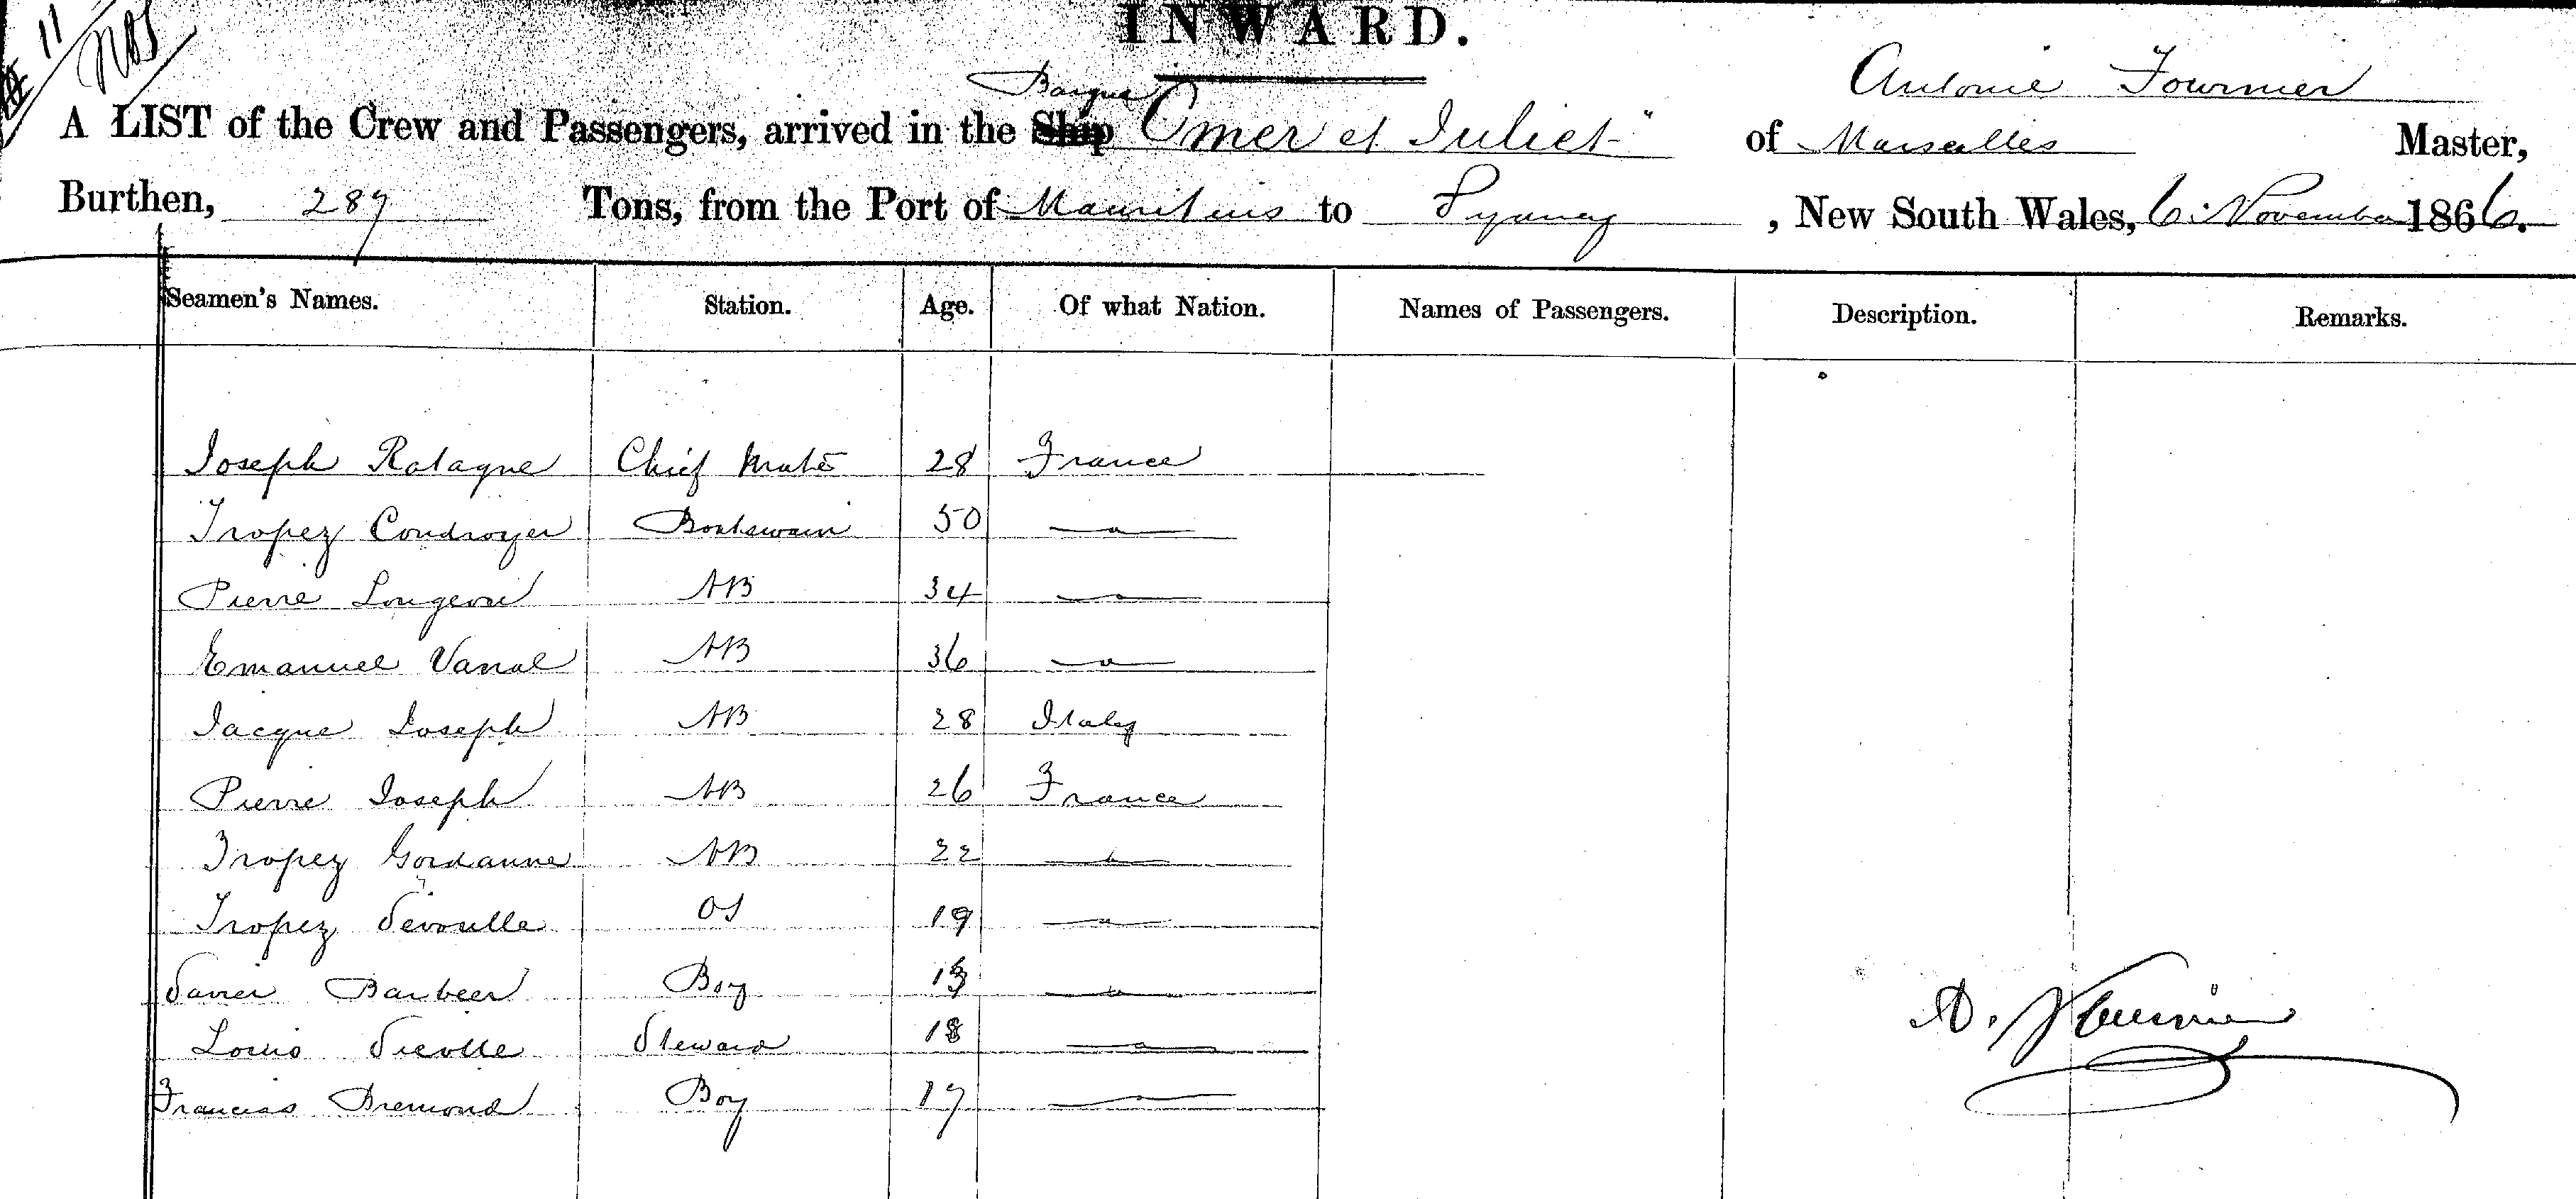 11
INWARD.
Barque
Antonie Fournier
A LIST of the Crew and Passengers, arrived in the Ship "Omer et Juliet" of Marseilles Master,
Burthen, 289 Tons, from the Port of Mauritius to Sydney, New South Wales, 6. November 1866.
Seamen's Names. Station. Age. Of what Nation. Names of Passengers. Description. Remarks.
Joseph Ratagne Chief Mate 28 France
Tropez Condroyer Boatswain 50 —"—
Pierre AB 34 —"—
Emanuel AB 36 —"—
Jacque Joseph AB 28 Italy
Pierre Joseph AB 26 France
Tropez Gordanne AB 22 —"—
Tropez OS 19 —"—
Barbeer Boy —"—
Louis Steward 18 —"—
Francis Bremond Boy 17 —"—
A. Fournier